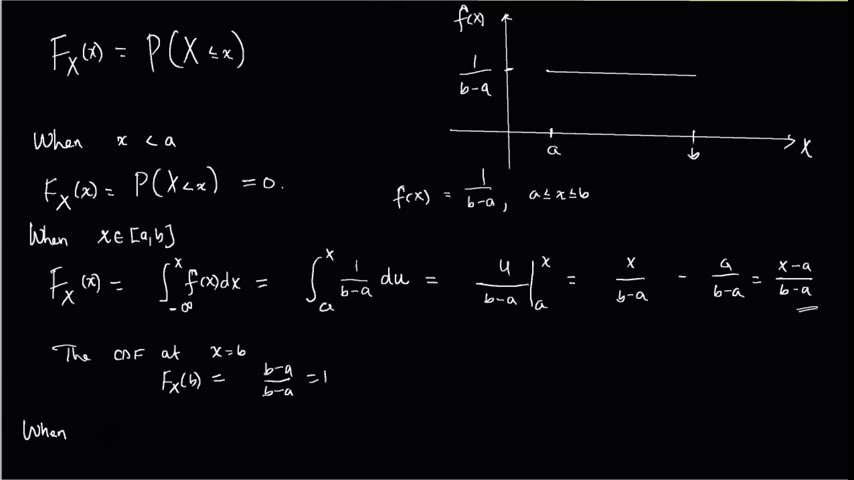 F_X(x) = P(X ≤ x)
f(x)
1/(b-a)
a
b
X
When x < a
F_X(x) = P(X < x) = 0.
f(x) = 1/(b-a), a ≤ x ≤ b
When x ∈ [a,b]
F_X(x) = ∫_{-∞}^{x} f(x)dx = ∫_{a}^{x} 1/(b-a) du = u/(b-a) |_{a}^{x} = x/(b-a) - a/(b-a) = (x-a)/(b-a)
The CDF at x=b
F_X(b) = (b-a)/(b-a) = 1
When